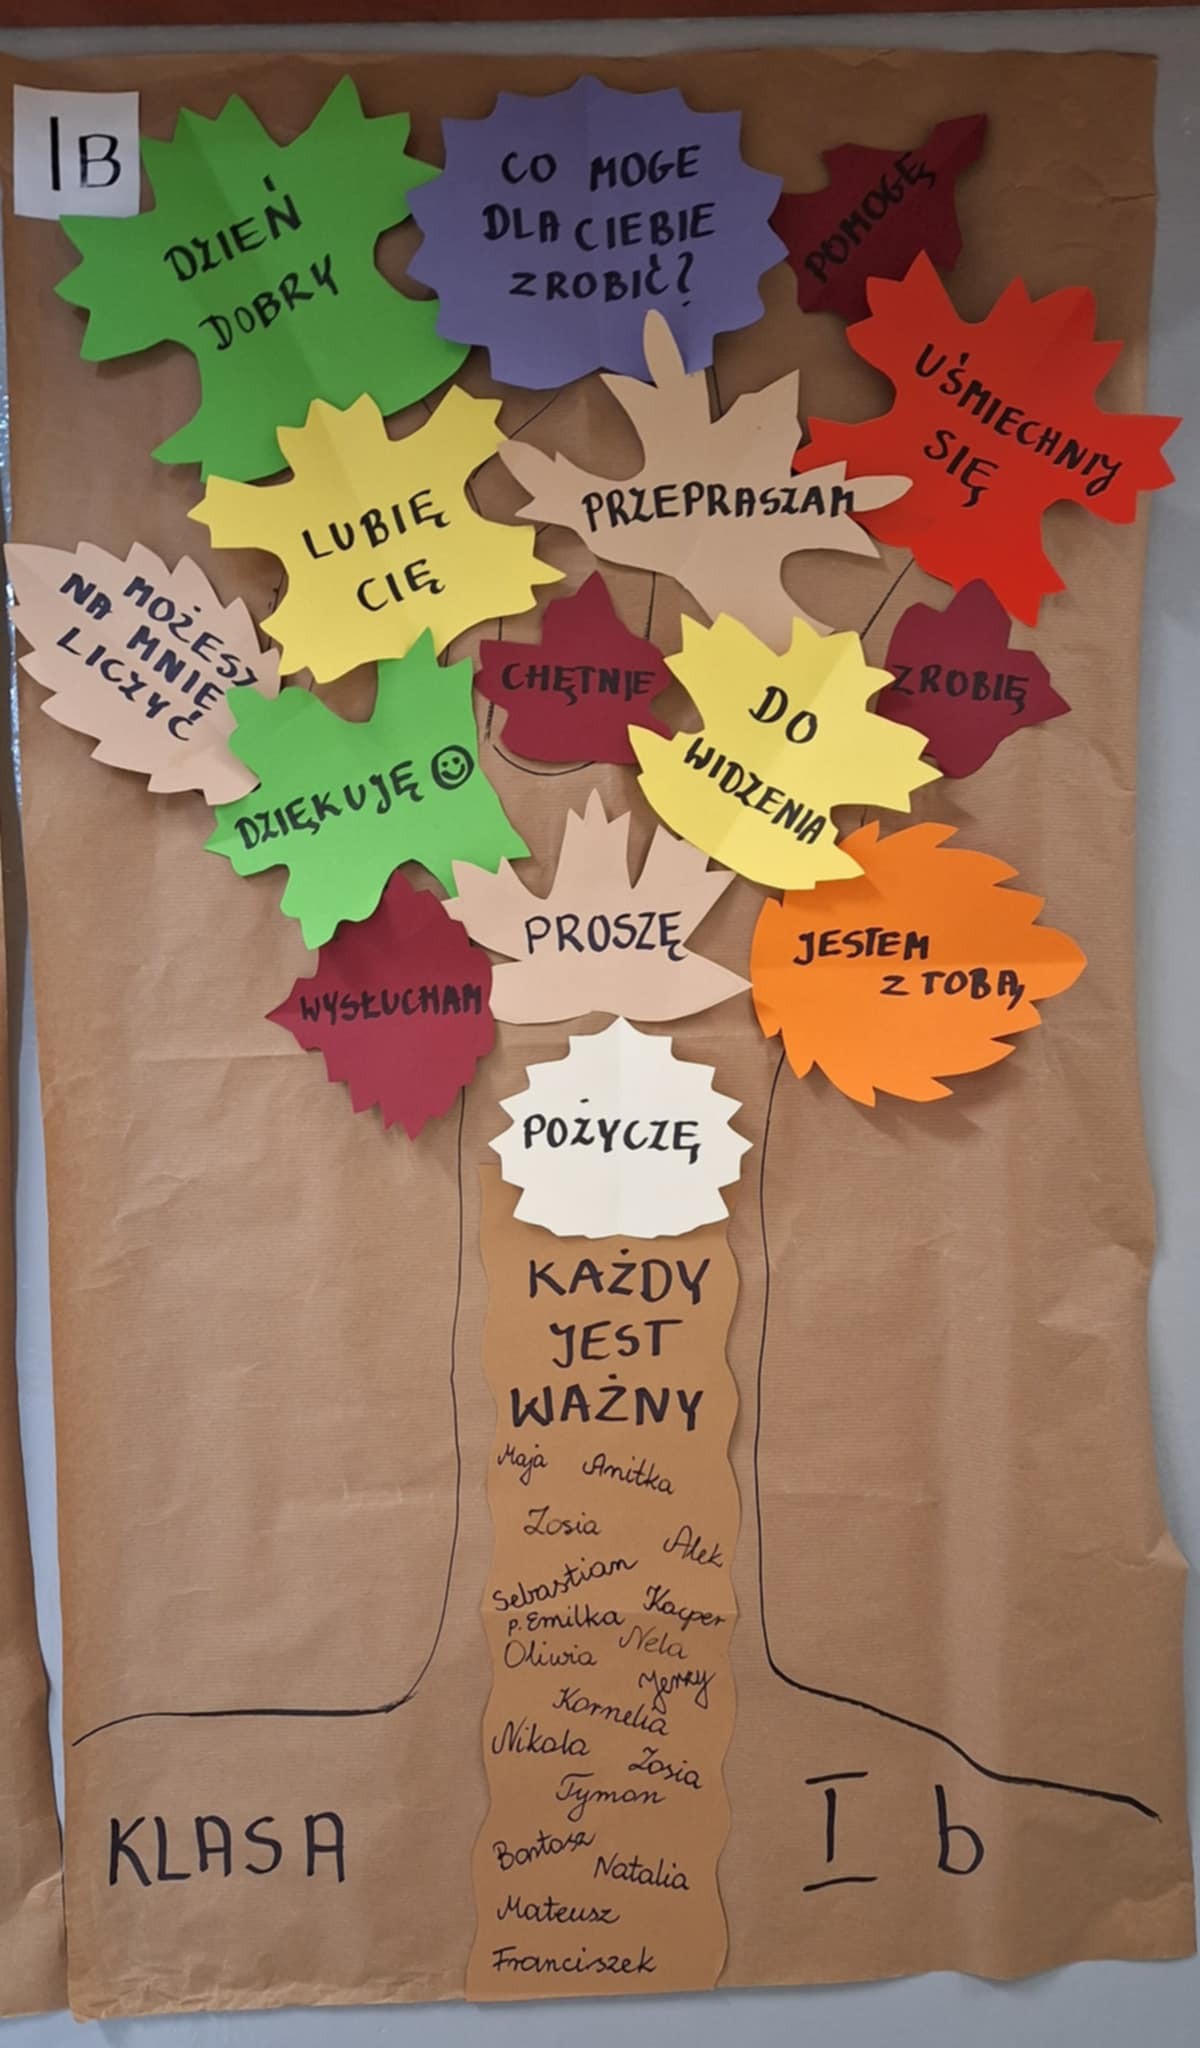 IB
DZIEŃ
DOBRY
CO MOGE
DLA CIEBIE
ZROBIĆ?
POMOGĘ
UŚMIECHNIJ
SIĘ
LUBIĘ
CIĘ
PRZEPRASZAM
MOŻESZ
NA MNIE
LICZYĆ
DZIĘKUJĘ ☺
CHĘTNIE
DO
WIDZENIA
ZROBIĘ
WYSŁUCHAM
PROSZĘ
JESTEM
Z TOBĄ
POŻYCZĘ
KAŻDY
JEST
WAŻNY
Maja Anitka
Zosia
Alek
Sebastian
Kacper
p. Emilka
Oliwia Nela
Jerzy
Kornelia
Nikola
Zosia
Tymon
Bartosz
Natalia
Mateusz
Franciszek
KLASA I b